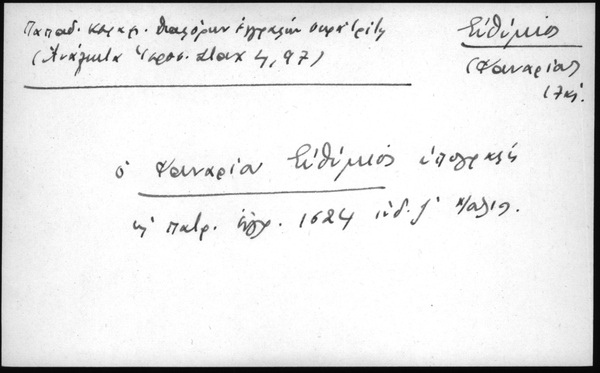 Παπαδ. Κεραμ. διαφόρων ἐγγραφῶν
(Ἀνάλεκτα Ἱεροσ. Σταχ 4, 97)
Εὐθύμιος
(Φαναρίου)
17ος
ὁ Φαναρίου Εὐθύμιος ὑπογραφή
εἰς πατρ. ἔγγρ. 1624 ἰνδ.